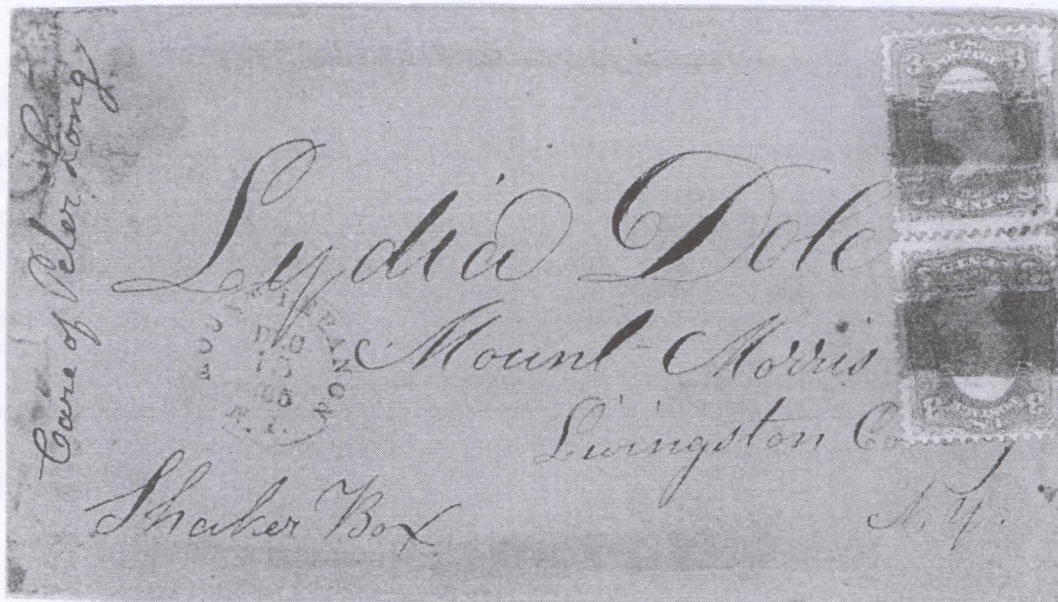 Care of Peter Long
Lydia Dole
Mount Morris
Livingston
N.Y.
Shaker Box
MOUNT LEBANON
N.Y.